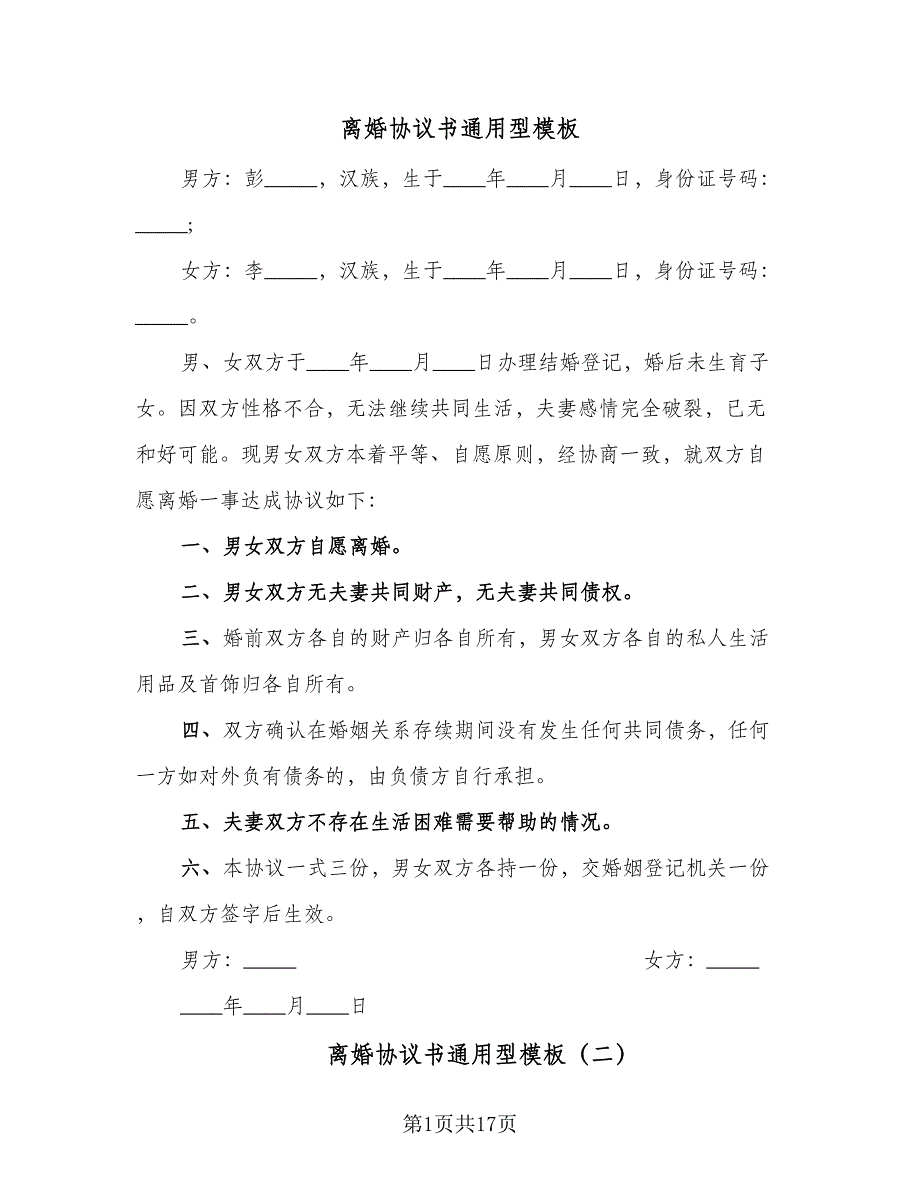 离婚协议书通用型模板
男方：彭_____，汉族，生于____年____月____日，身份证号码：
_____;
女方：李_____，汉族，生于____年____月____日，身份证号码：
_____。
男、女双方于____年____月____日办理结婚登记，婚后未生育子
女。因双方性格不合，无法继续共同生活，夫妻感情完全破裂，已无
和好可能。现男女双方本着平等、自愿原则，经协商一致，就双方自
愿离婚一事达成协议如下：
一、男女双方自愿离婚。
二、男女双方无夫妻共同财产，无夫妻共同债权。
三、婚前双方各自的财产归各自所有，男女双方各自的私人生活
用品及首饰归各自所有。
四、双方确认在婚姻关系存续期间没有发生任何共同债务，任何
一方如对外负有债务的，由负债方自行承担。
五、夫妻双方不存在生活困难需要帮助的情况。
六、本协议一式三份，男女双方各持一份，交婚姻登记机关一份
，自双方签字后生效。
男方：_____ 女方：_____
____年____月____日
离婚协议书通用型模板（二）
第1页共17页